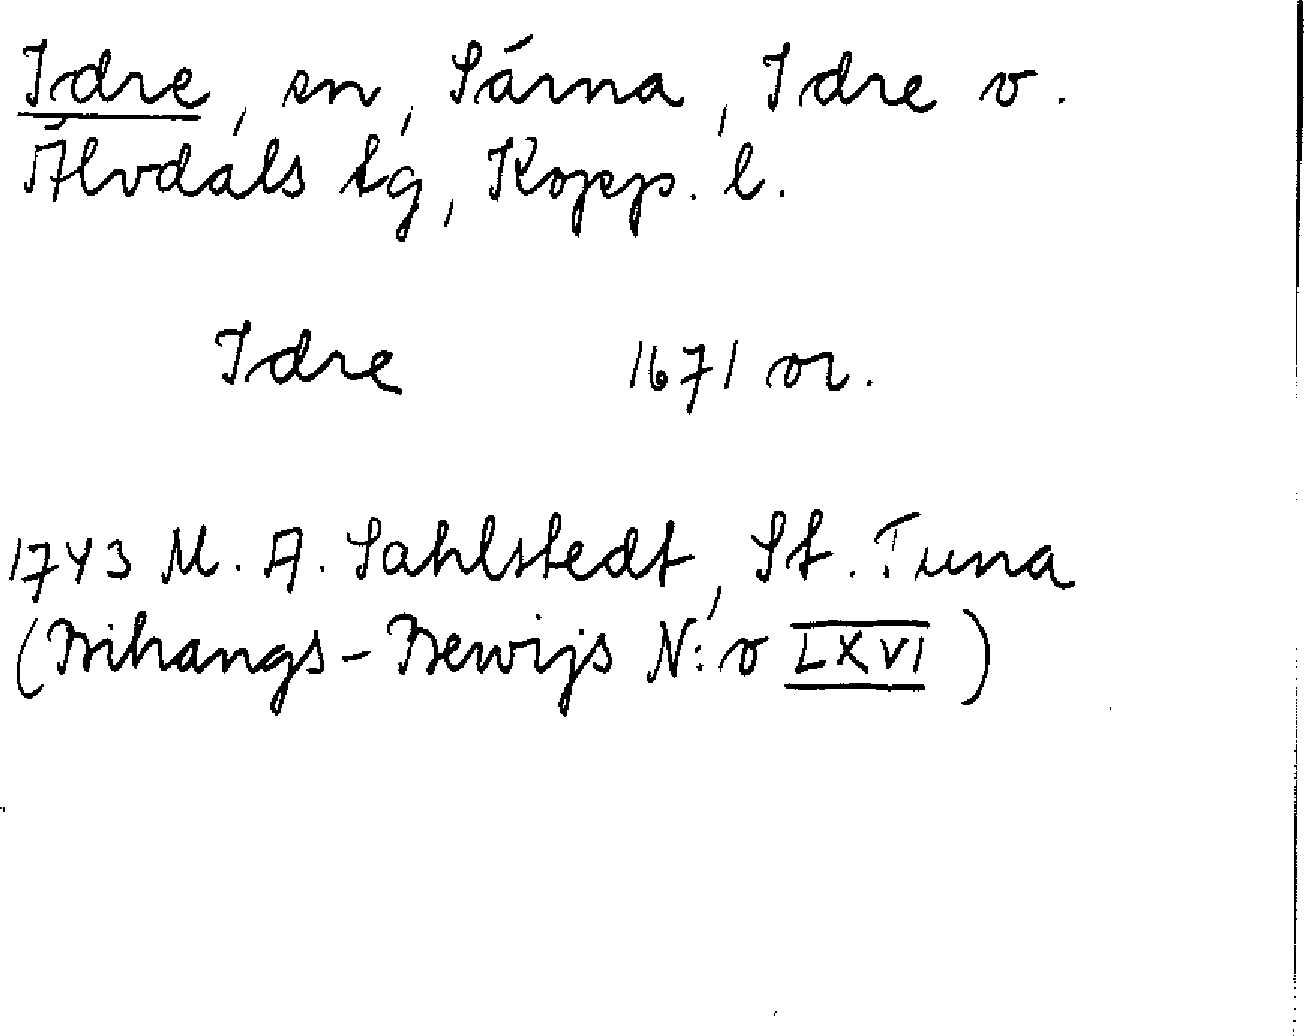 Idre, sn, Särna, Idre o.
Älvdals tg, Kopp. l.
Idre 1671 or.
1743 M. A. Sahlstedt, St. Tuna
(Bihangs-Bewijs N:o LXVI)